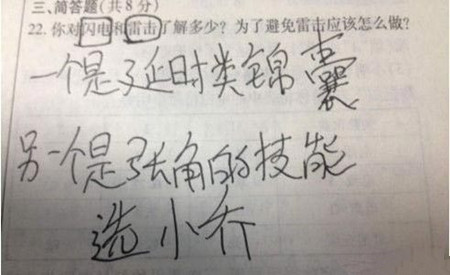 三、简答题(共8分)
22. 你对闪电和雷击了解多少？为了避免雷击应该怎么做?
一个是延时类锦囊
另一个是张角的技能
选小乔